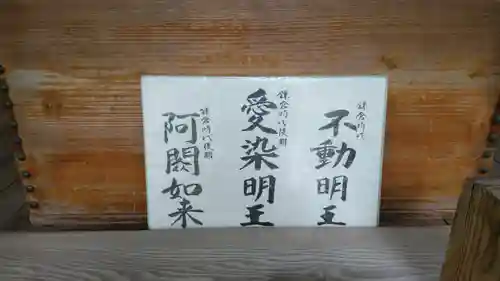 鎌倉時代
不動明王
鎌倉時代後期
愛染明王
鎌倉時代後期
阿閦如来